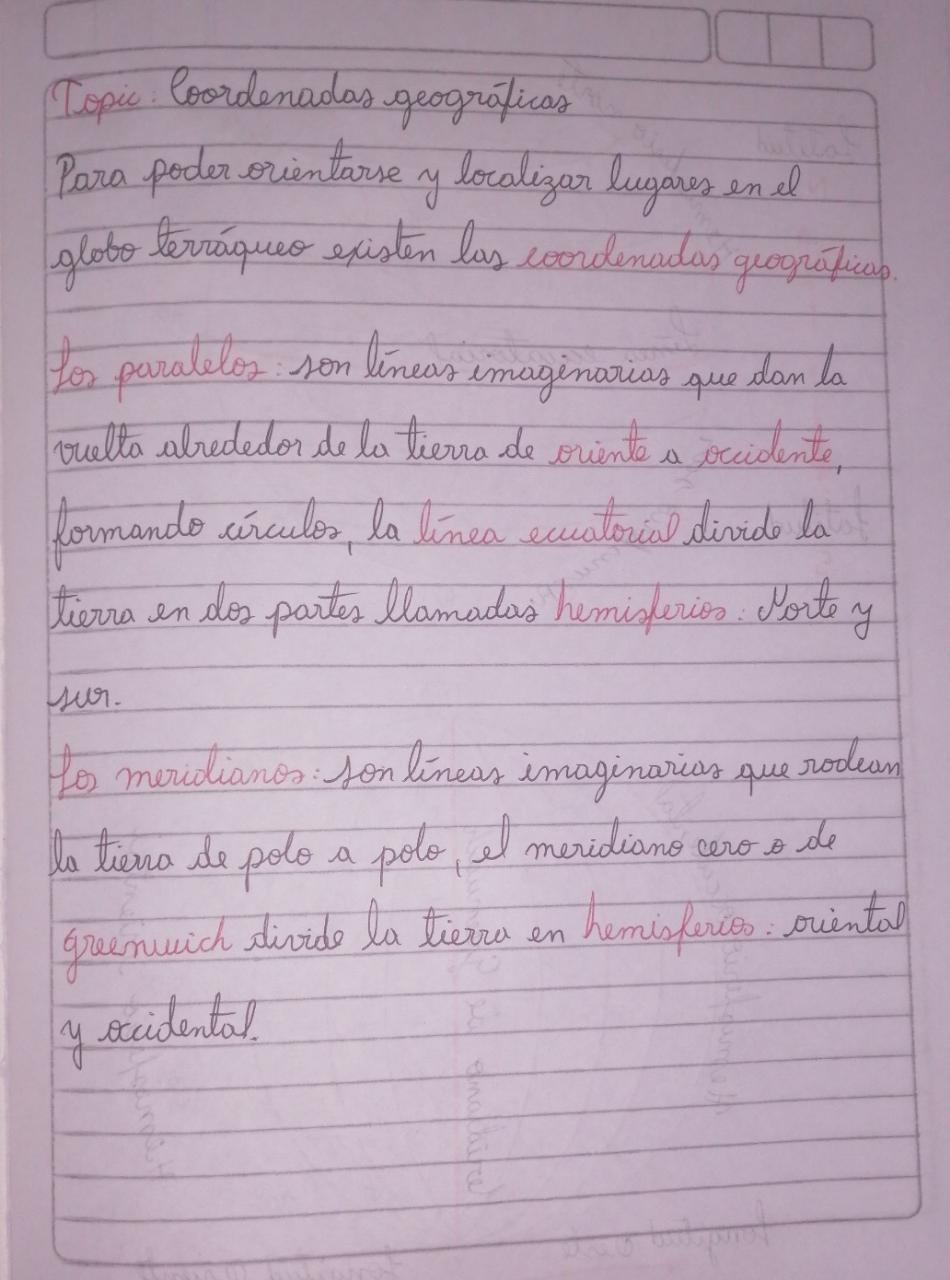 Topic: Coordenadas geográficas
Para poder orientarse y localizar lugares en el
globo terráqueo existen las coordenadas geográficas.
Los paralelos: son líneas imaginarias que dan la
vuelta alrededor de la tierra de oriente a occidente,
formando círculos, la línea ecuatorial divide la
tierra en dos partes llamadas hemisferios: Norte y
sur.
Los meridianos: son líneas imaginarias que rodean
la tierra de polo a polo, el meridiano cero o de
greenwich divide la tierra en hemisferios: oriental
y occidental.